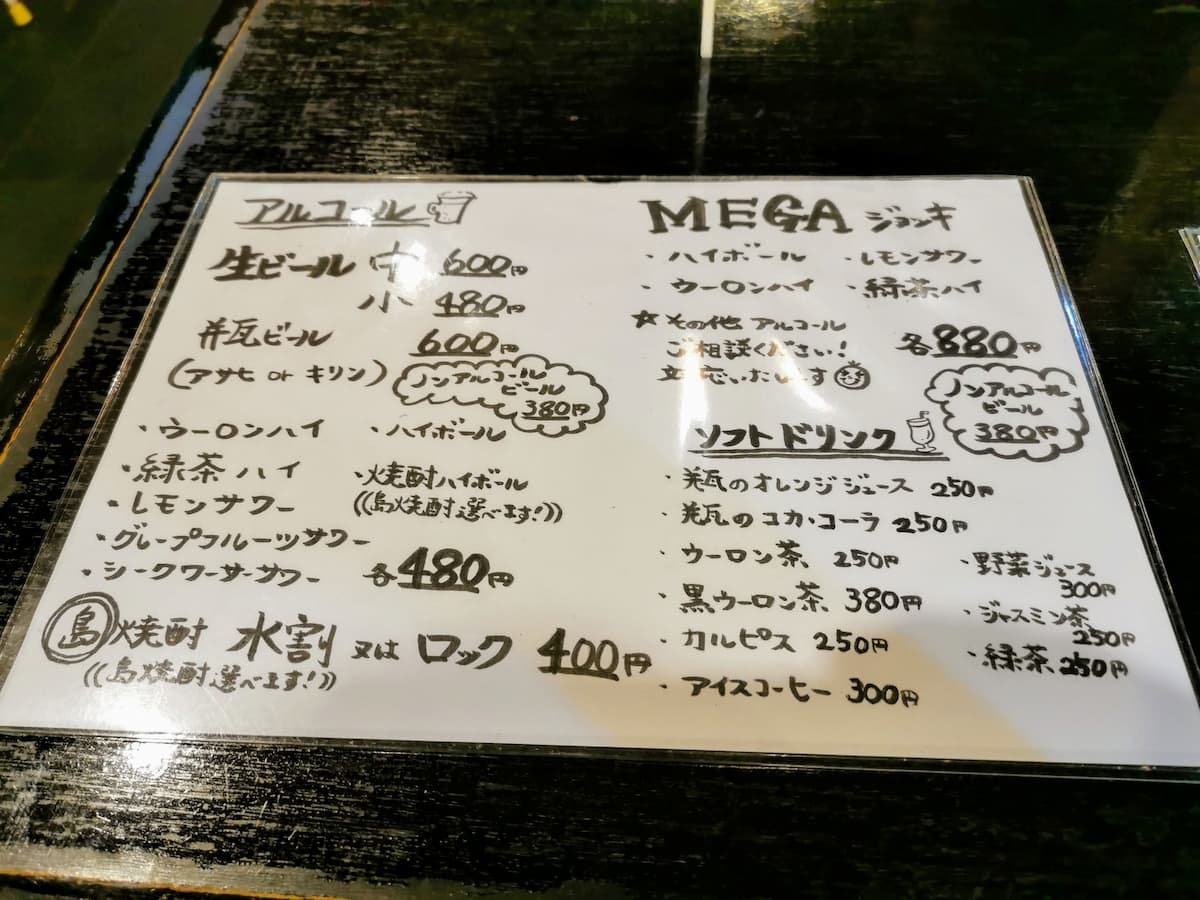 アルコール
生ビール 中 600円
小 480円
瓶ビール 600円
(アサヒ or キリン)
ノンアルコール
ビール
380円
・ウーロンハイ
・ハイボール
・緑茶ハイ
・焼酎ハイボール
((島焼酎選べます!))
・レモンサワー
・グレープフルーツサワー
・シークワーサーサワー
各480円
島焼酎 水割 又は ロック 400円
((島焼酎選べます!))
MEGA ジョッキ
・ハイボール ・レモンサワー
・ウーロンハイ ・緑茶ハイ
☆その他 アルコール
ご相談ください!
対応いたします
各880円
ノンアルコール
ビール
380円
ソフトドリンク
・瓶のオレンジジュース 250円
・瓶のコカ・コーラ 250円
・ウーロン茶 250円
・黒ウーロン茶 380円
・カルピス 250円
・アイスコーヒー 300円
・野菜ジュース
300円
・ジャスミン茶
250円
・緑茶 250円